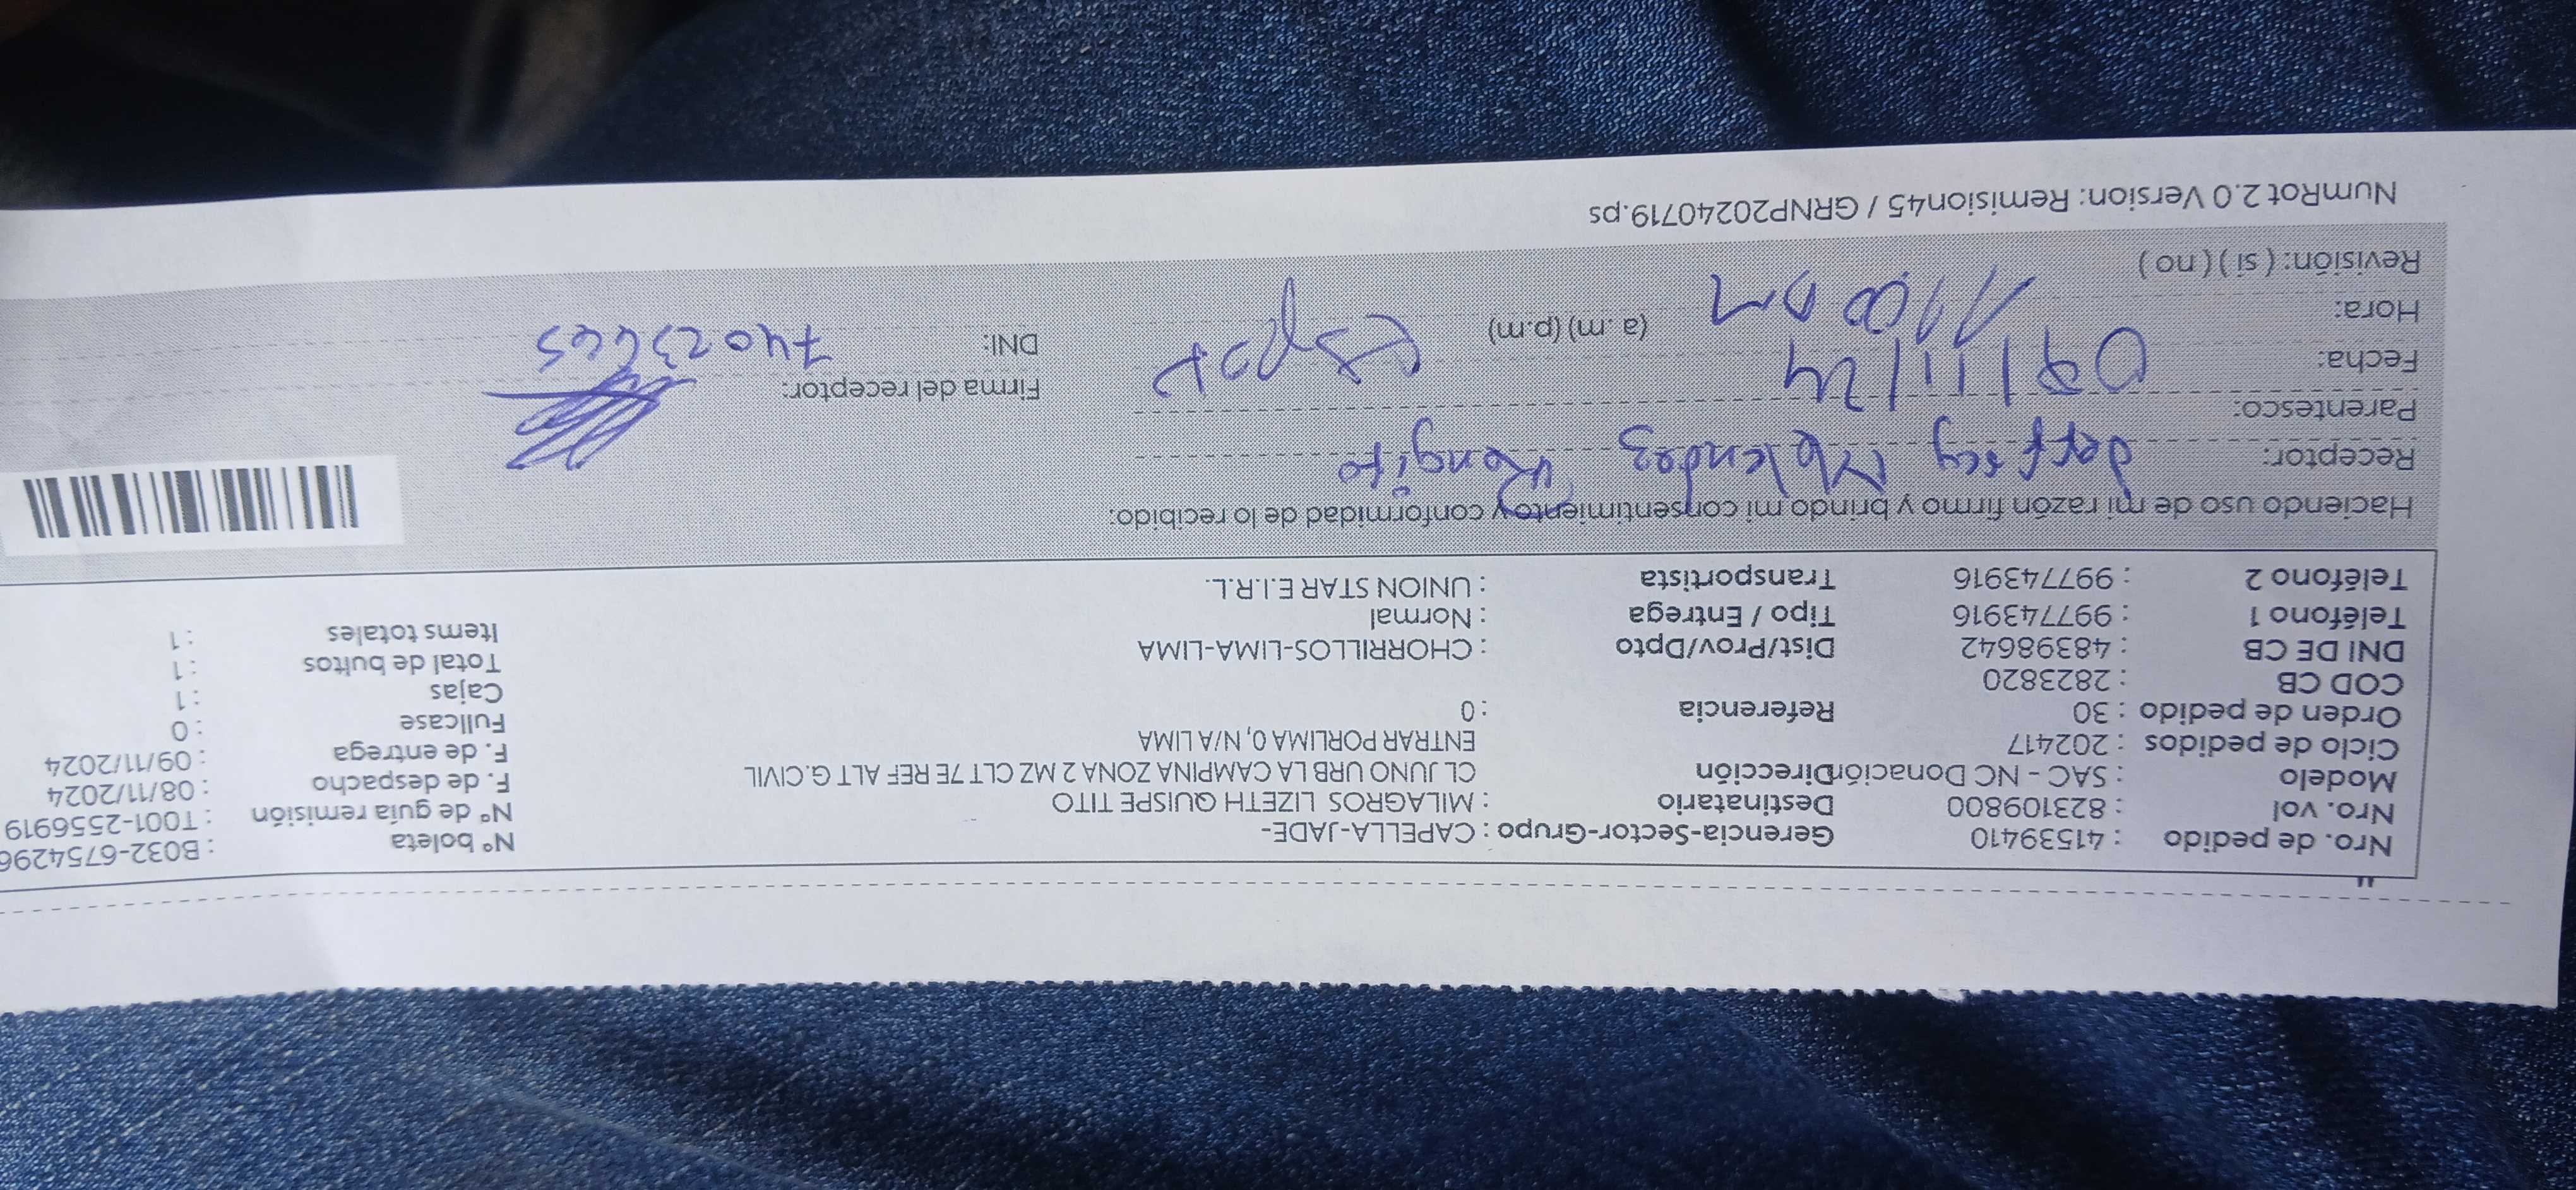 Nro. de pedido : 41539410 Gerencia-Sector-Grupo : CAPELLA-JADE- N° boleta : B032-6754296
Nro. vol : 823109800 Destinatario : MILAGROS LIZETH QUISPE TITO N° de guía remisión : T001-2556919
Modelo : SAC - NC Donación Dirección CL JUNO URB LA CAMPINA ZONA 2 MZ CLT 7E REF ALT G.CIVIL F. de despacho : 08/11/2024
Ciclo de pedidos : 202417 ENTRAR PORLIMA 0, N/A LIMA F. de entrega : 09/11/2024
Orden de pedido : 30 Referencia : 0 Fullcase : 0
COD CB : 2823820 Cajas : 1
DNI DE CB : 48398642 Dist/Prov/Dpto : CHORRILLOS-LIMA-LIMA Total de bultos : 1
Teléfono 1 : 997743916 Tipo / Entrega : Normal Items totales : 1
Teléfono 2 : 997743916 Transportista : UNION STAR E.I.R.L.
Haciendo uso de mi razón firmo y brindo mi consentimiento y conformidad de lo recibido:
Receptor: Melendez Rengifo
Parentesco: Firma del receptor:
Fecha: 09/11/24
Hora: 11:00 am (a.m) (p.m) DNI:
Revisión: ( si ) ( no )
NumRot 2.0 Version: Remision45 / GRNP20240719.ps